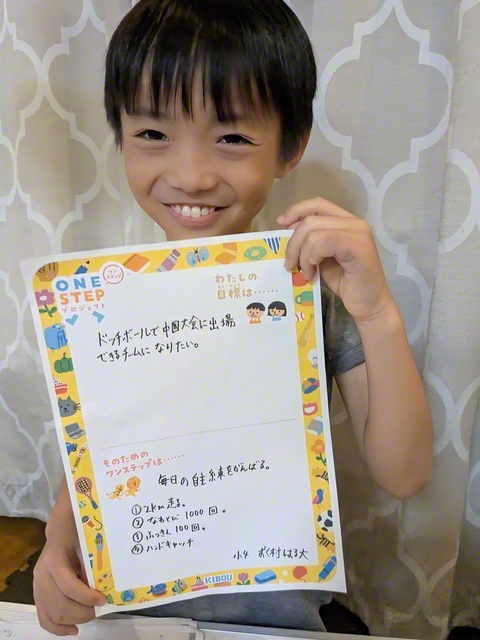 ONE
STEP
プロジェクト
ワンステップ
わたしの
目標は……
ドッヂボールで中国大会に出場
できるチームになりたい。
そのための
ワンステップは……
毎日の自主練をがんばる。
① 2km走る。
② なわとび 1000回。
③ ふっきん 100回。
④ ハンドキャッチ
小4
村はる大
KIBOU